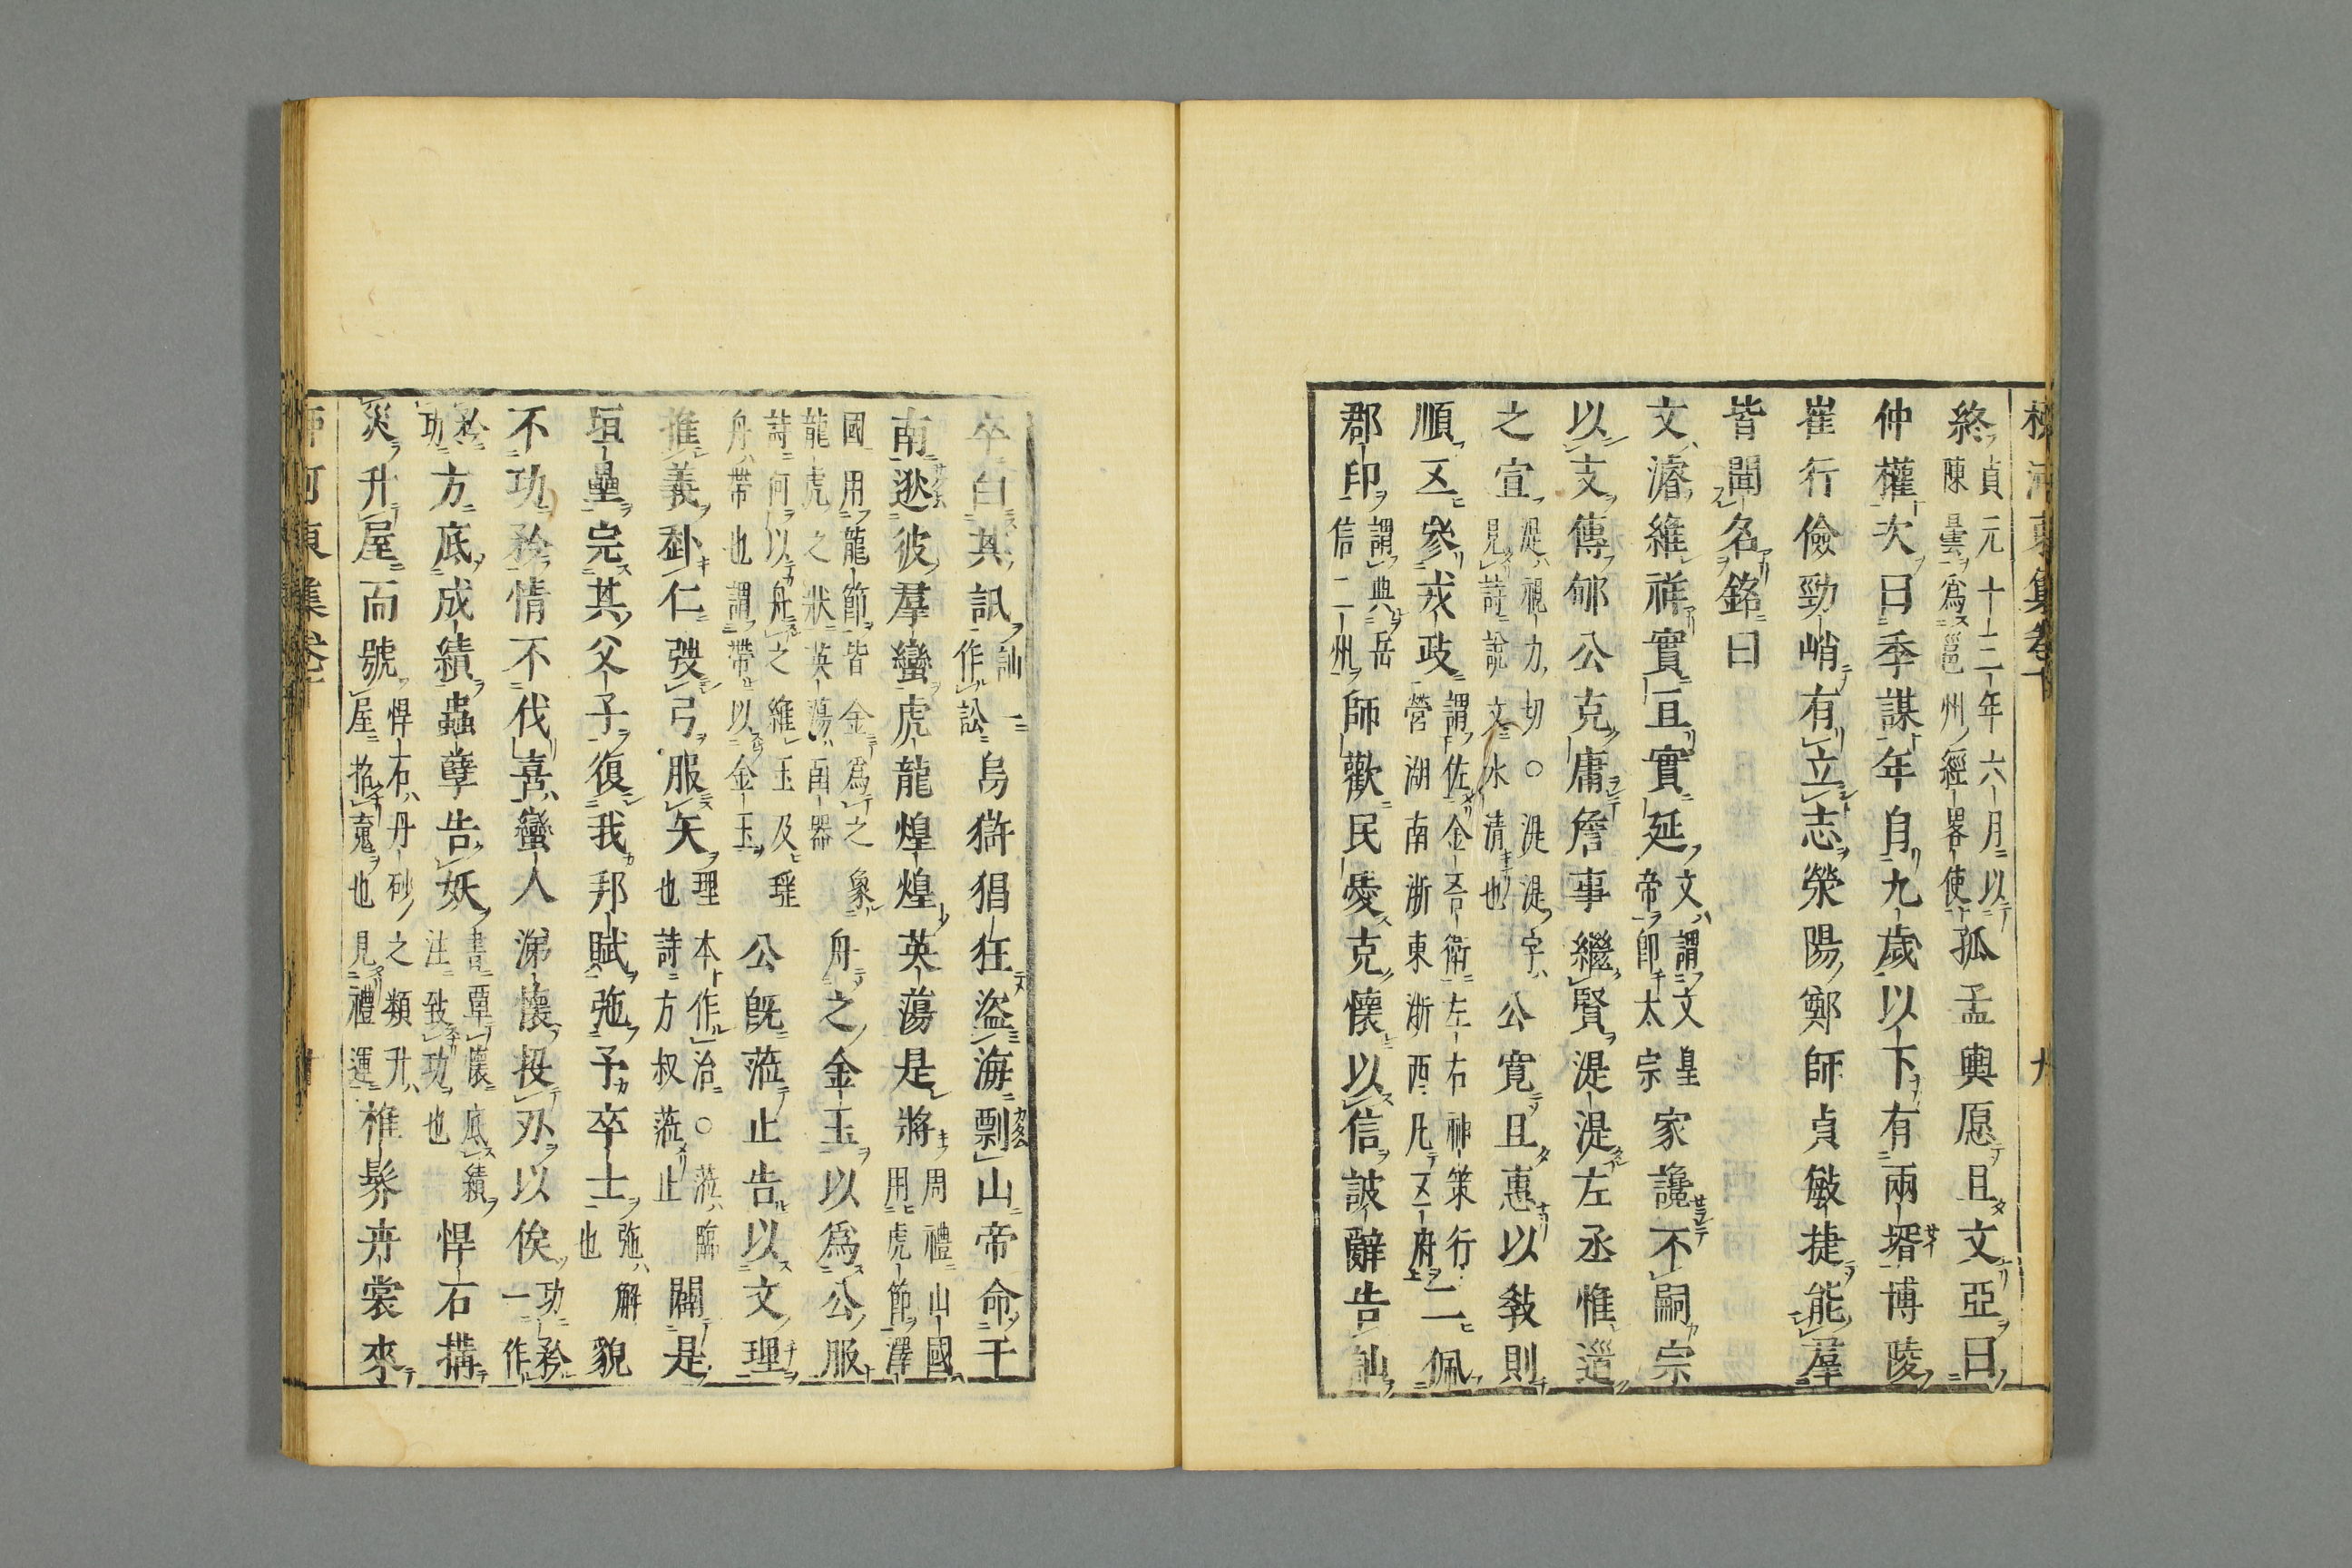 終貞元十三年六月以陳曇爲邕州經畧使孤孟輿愿且文亞曰
仲權次曰季謀年自九歲以下有兩壻博陵
崔行儉勁峭有立志滎陽鄭師貞敏捷能羣
皆聞名銘曰
文濬維祥實亘實延文謂文皇帝即太宗家讒不嗣宗
以支傳郇公克庸詹事繼賢湜湜左丞惟邇
之宣湜視力切○湜湜字見詩說文水清也公寬且惠以敎則
順五參戎政謂佐金吾衛左右神策行營湖南浙東浙西凡五府二佩
郡印謂典岳信二州師歡民愛克懷以信詖辭告訕
卒白其訊訕一作訟島獠猖狂盜海剽山帝命于
南逖彼羣蠻虎龍煌煌英蕩是將周禮山國用虎節澤
國用龍節皆金爲之象龍虎之狀英蕩函器舟之金玉以爲公服
詩何以舟之維玉及瑤舟帶也謂帶以金玉公旣蒞止告以文理
進義仁弢弓服矢理本作治○蒞臨也詩方叔蒞止闢是
垣壘完其父子復我邦賦弛予卒士弛解也貌
不功矜情不伐喜蠻人涕懷投刃以俟功矜一作
矜功方底成績蟲孽告妖書覃懷底績注致功也悍石搆
災升屋而號悍石丹砂之類升屋招䰟也見禮運椎髽卉裳來
柳河東集卷十